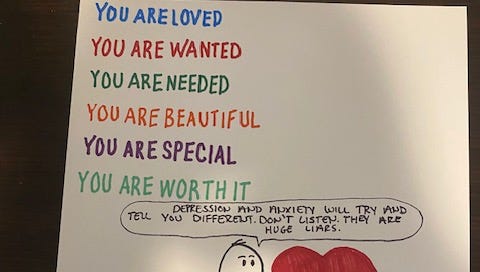 YOU ARE LOVED
YOU ARE WANTED
YOU ARE NEEDED
YOU ARE BEAUTIFUL
YOU ARE SPECIAL
YOU ARE WORTH IT
DEPRESSION AND ANXIETY WILL TRY AND
TELL YOU DIFFERENT. DON'T LISTEN. THEY ARE
HUGE LIARS.